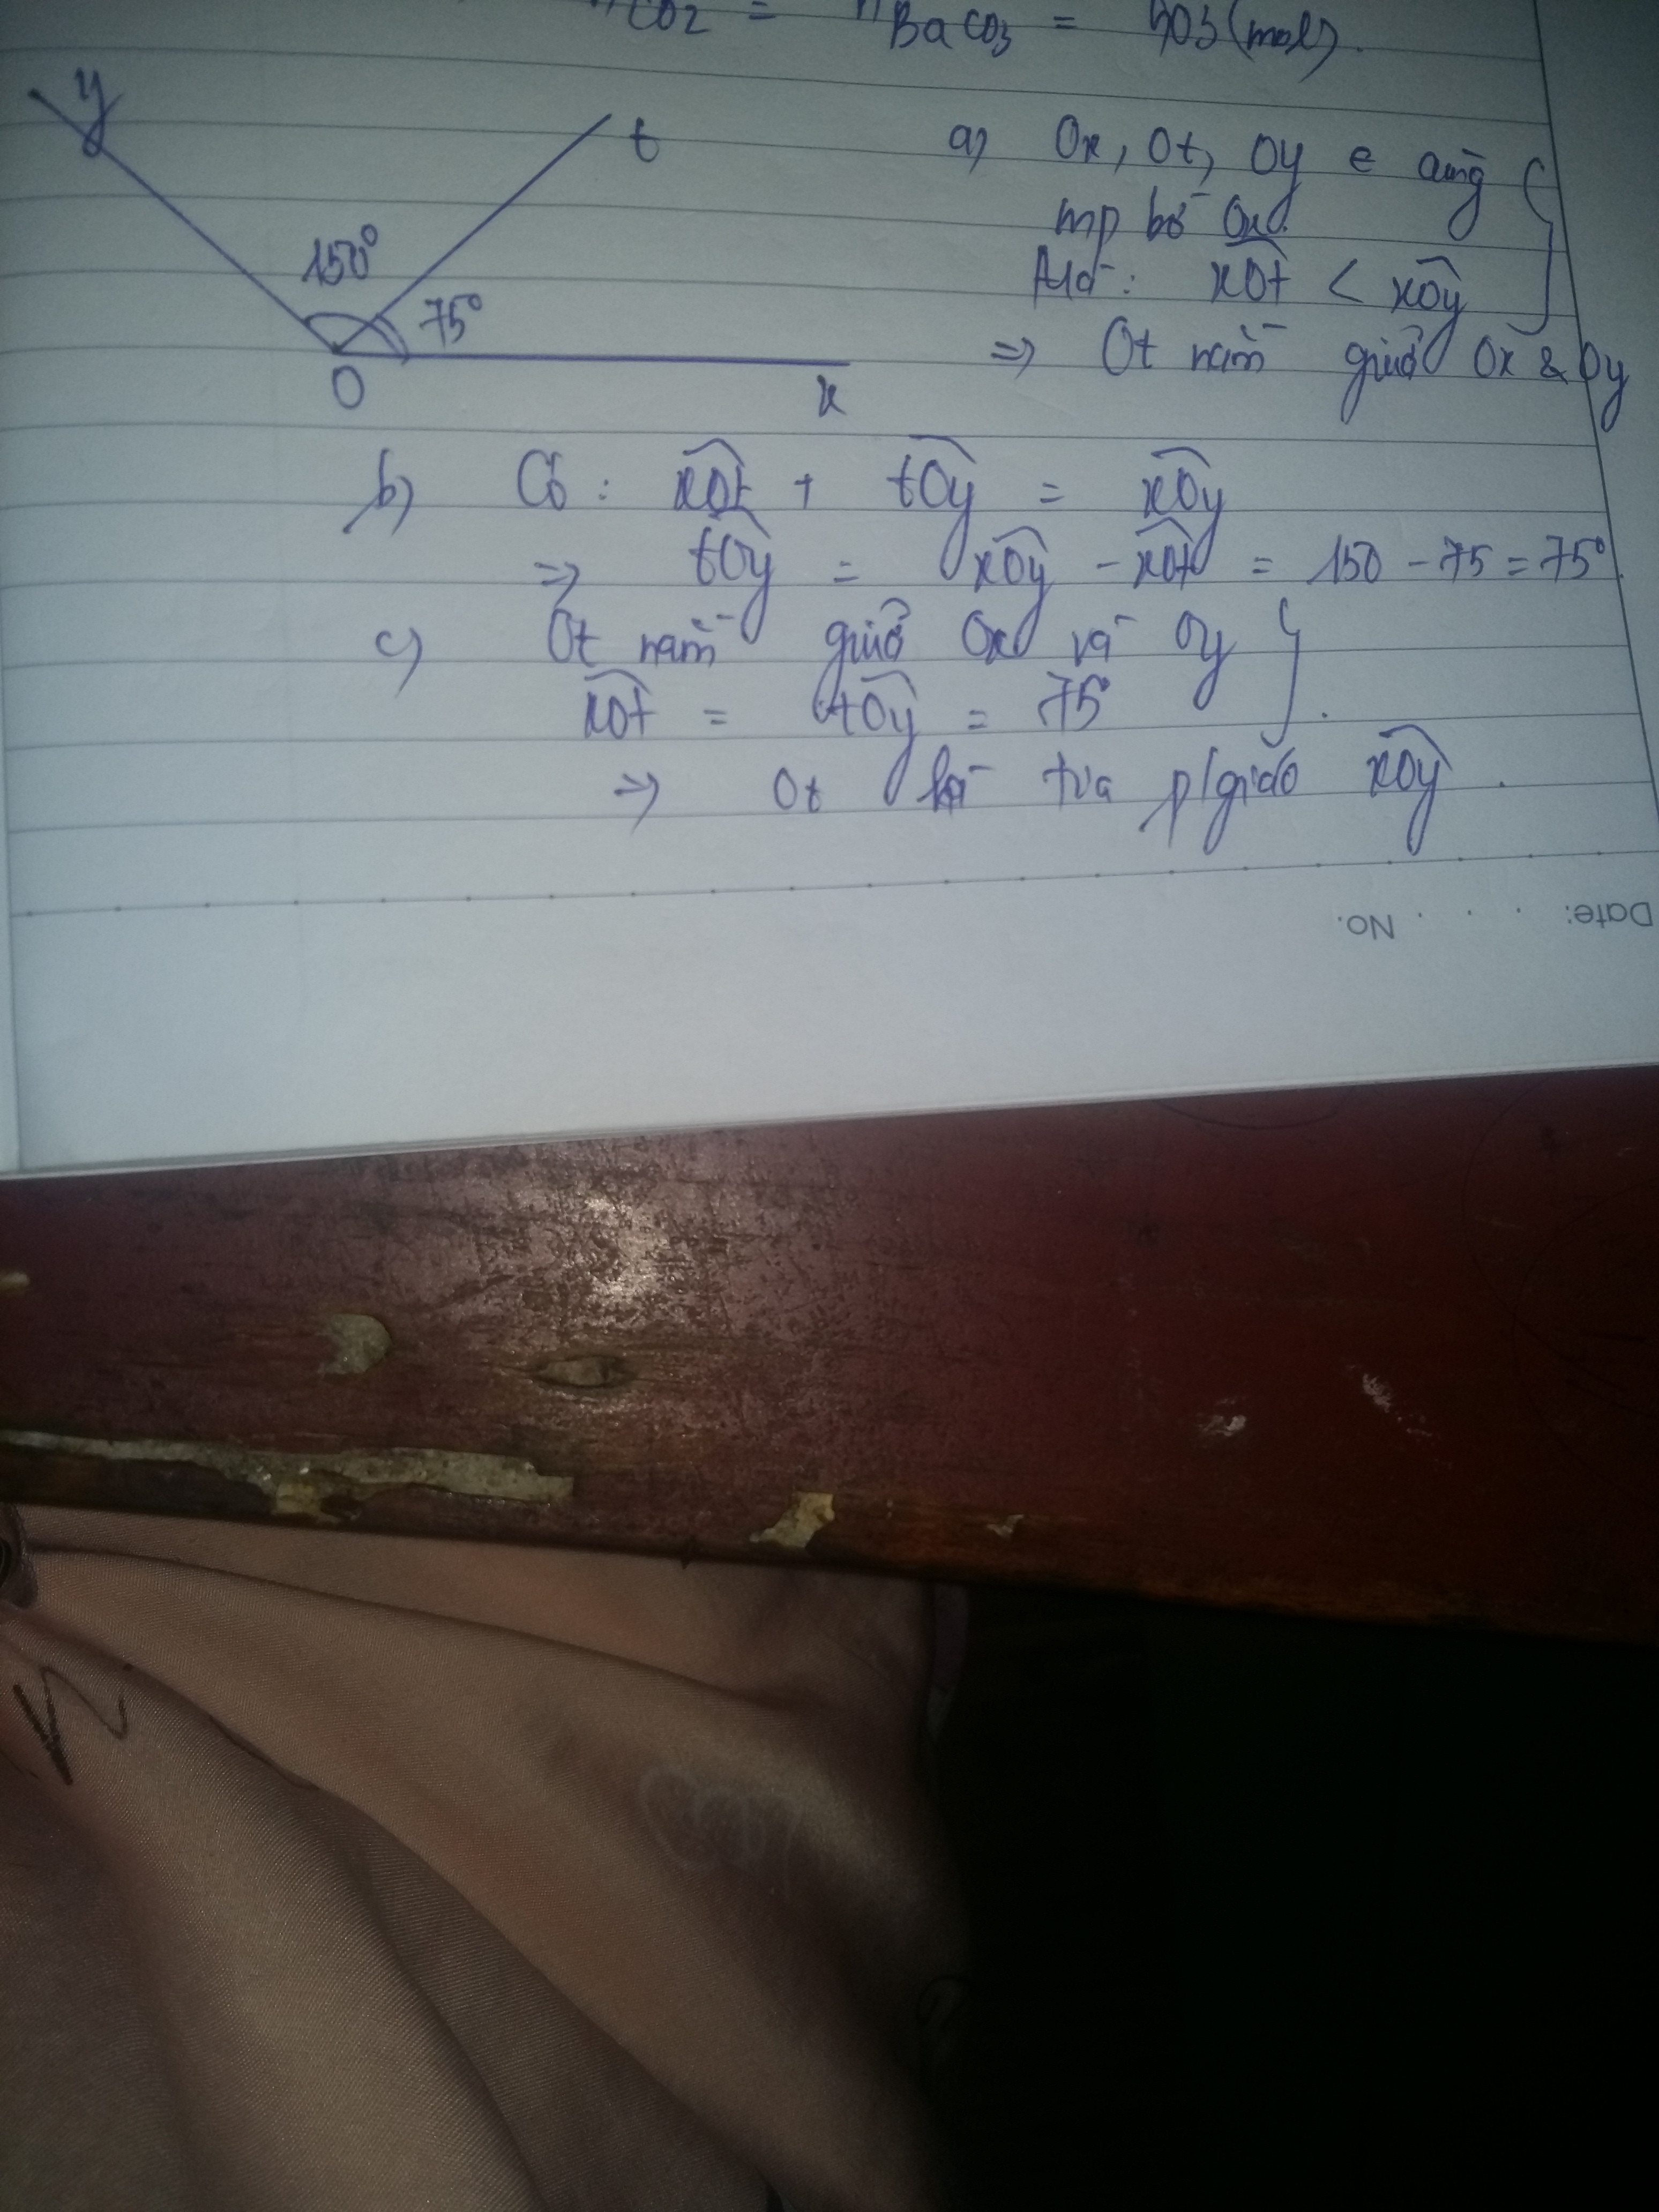 nCO2 = nBaCO3 = 0,03 (mol).
y
t
150°
75°
O
x
a) Ox, Ot, Oy ∈ cùng
mp bờ Ox.
Mà: xOt < xOy
=> Ot nằm giữa Ox & Oy
b) Có: xOt + tOy = xOy
=> tOy = xOy - xOt = 150 - 75 = 75°
c) Ot nằm giữa Ox và Oy
xOt = tOy = 75°
=> Ot là tia p/giác xOy.
Date: . . . No.